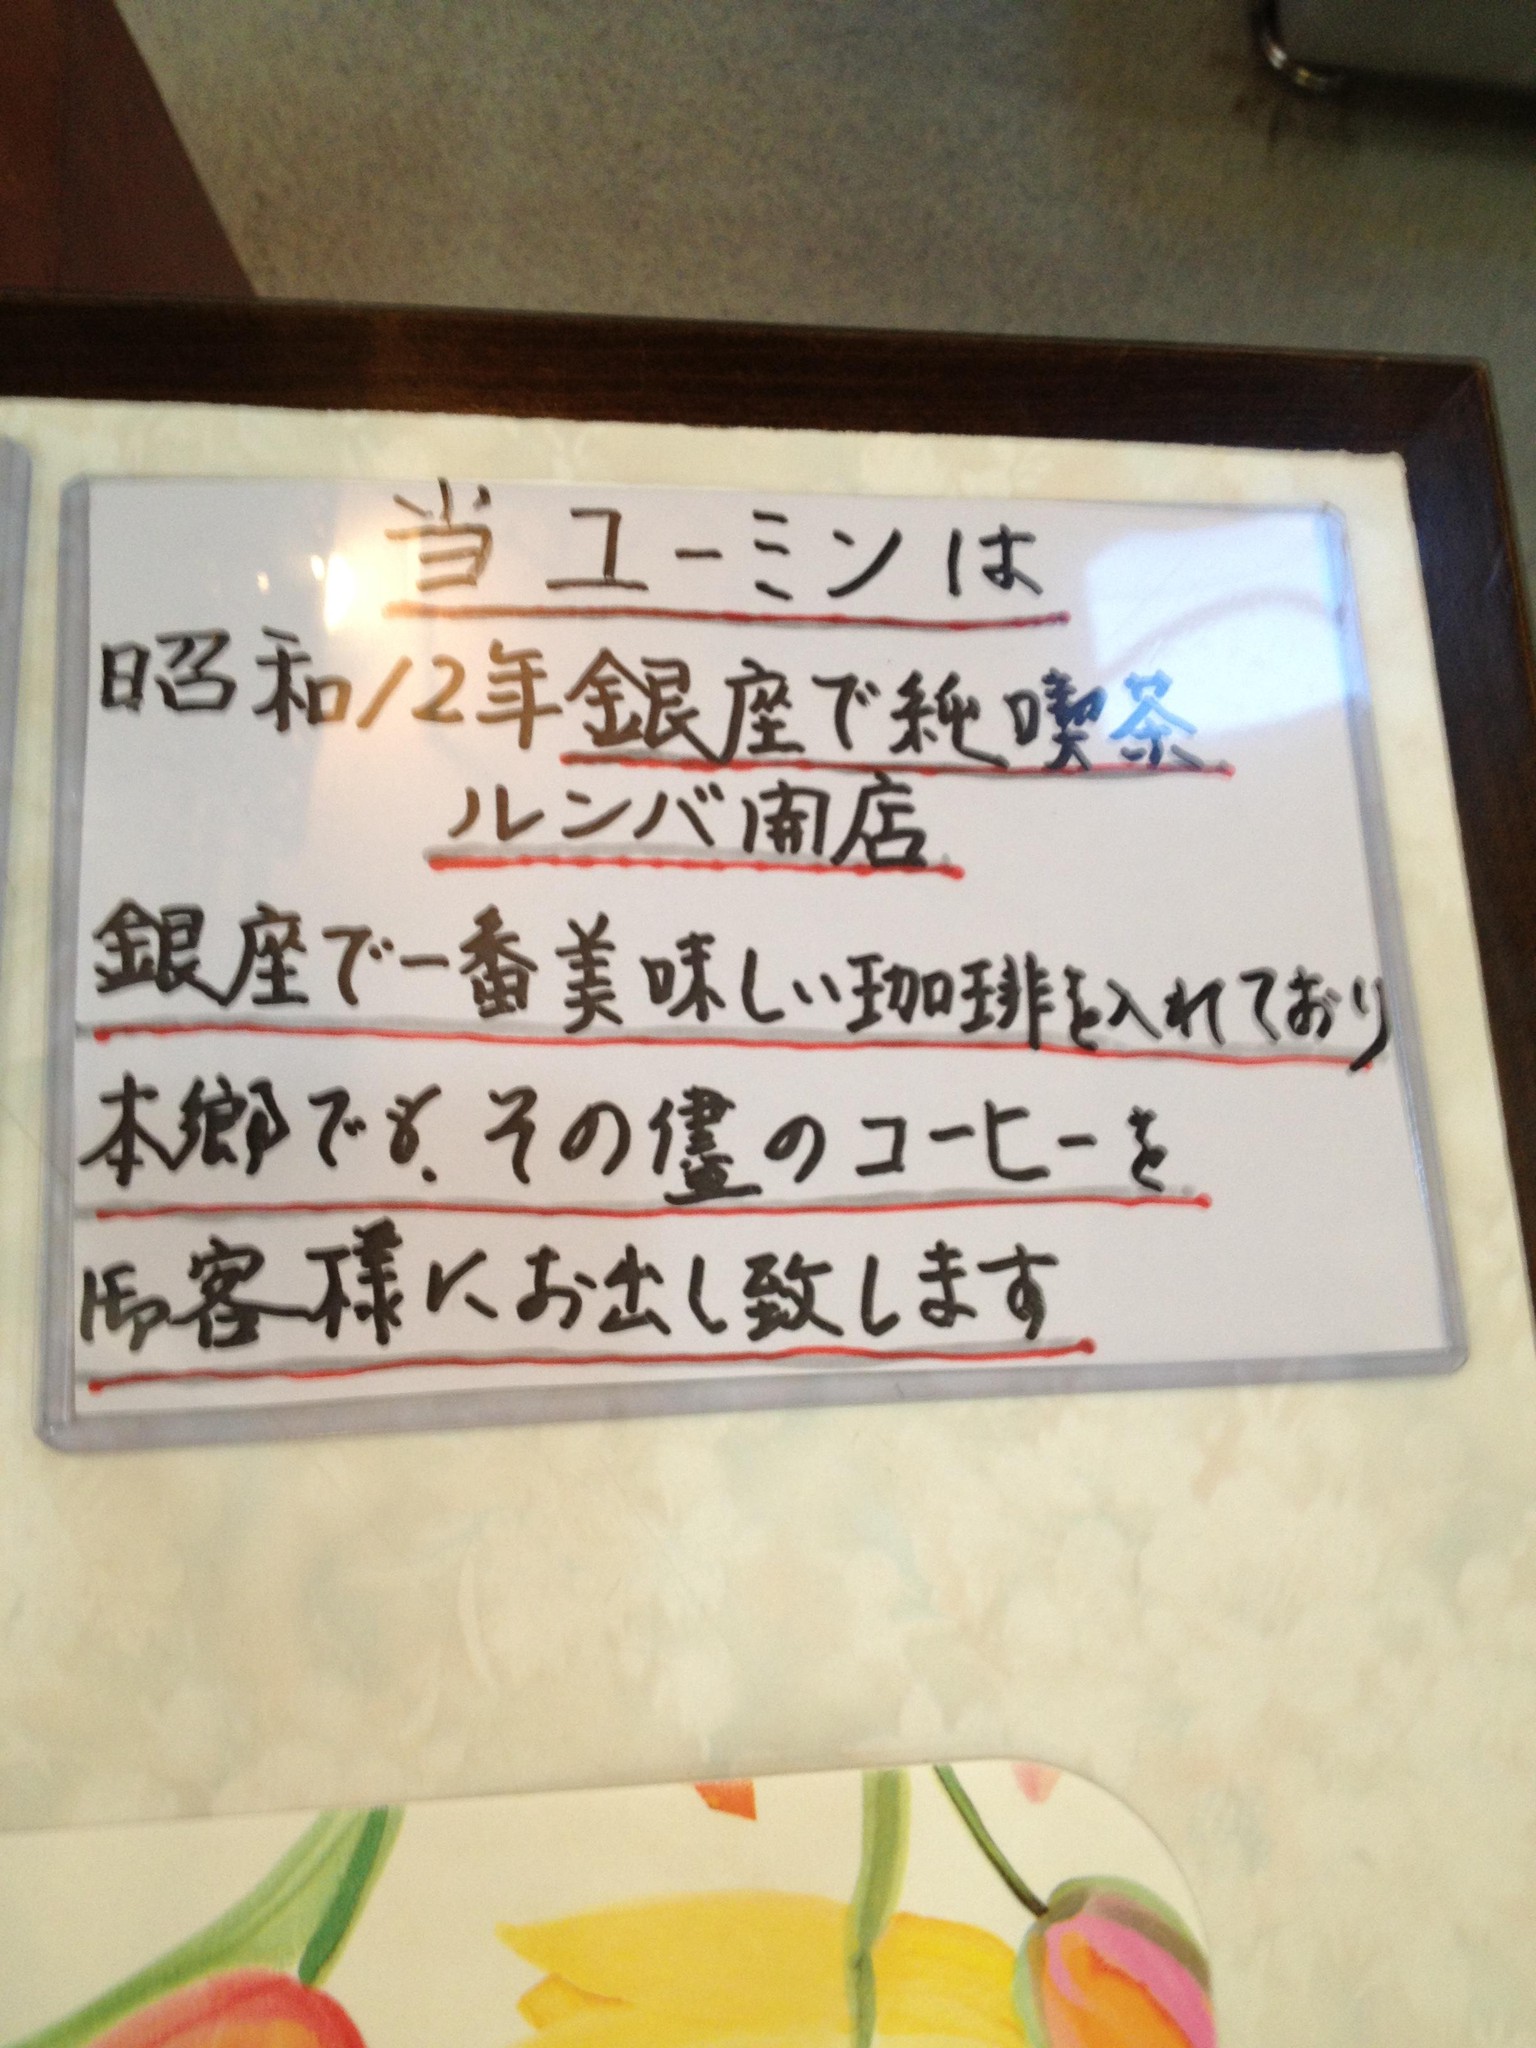 当ユーミンは
昭和12年銀座で純喫茶
ルンバ開店
銀座で一番美味しい珈琲を入れており
本郷でも、その儘のコーヒーを
御客様にお出し致します